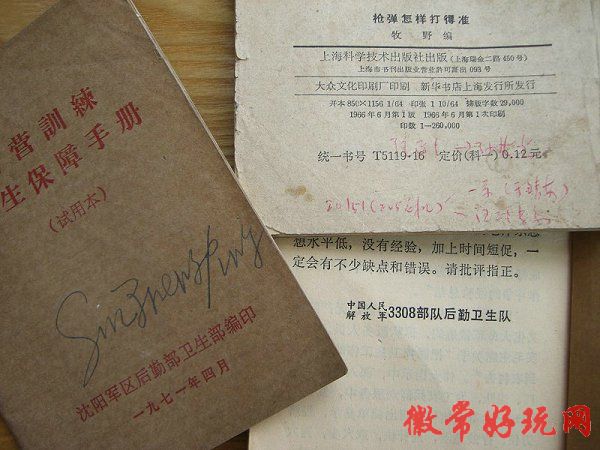 营訓練
生保障手册
(试用本)
沈阳军区后勤部卫生部编印
一九七一年四月
枪弹怎样打得准
牧野 编
上海科学技术出版社出版(上海瑞金二路450号)
上海市书刊出版业营业許可証出093号
大众文化印刷厂印刷 新华书店上海发行所发行
开本850×1156 1/64 印张1 10/64 排版字数29,000
1966年6月第1版 1966年6月第1次印刷
印数1-260,000
统一书号 T5119·16 定价(科一)0.12元
想水平低,没有经验,加上时间短促,一
定会有不少缺点和错误。请批评指正。
中国人民
解放军3308部队后勤卫生队
徽常好玩网